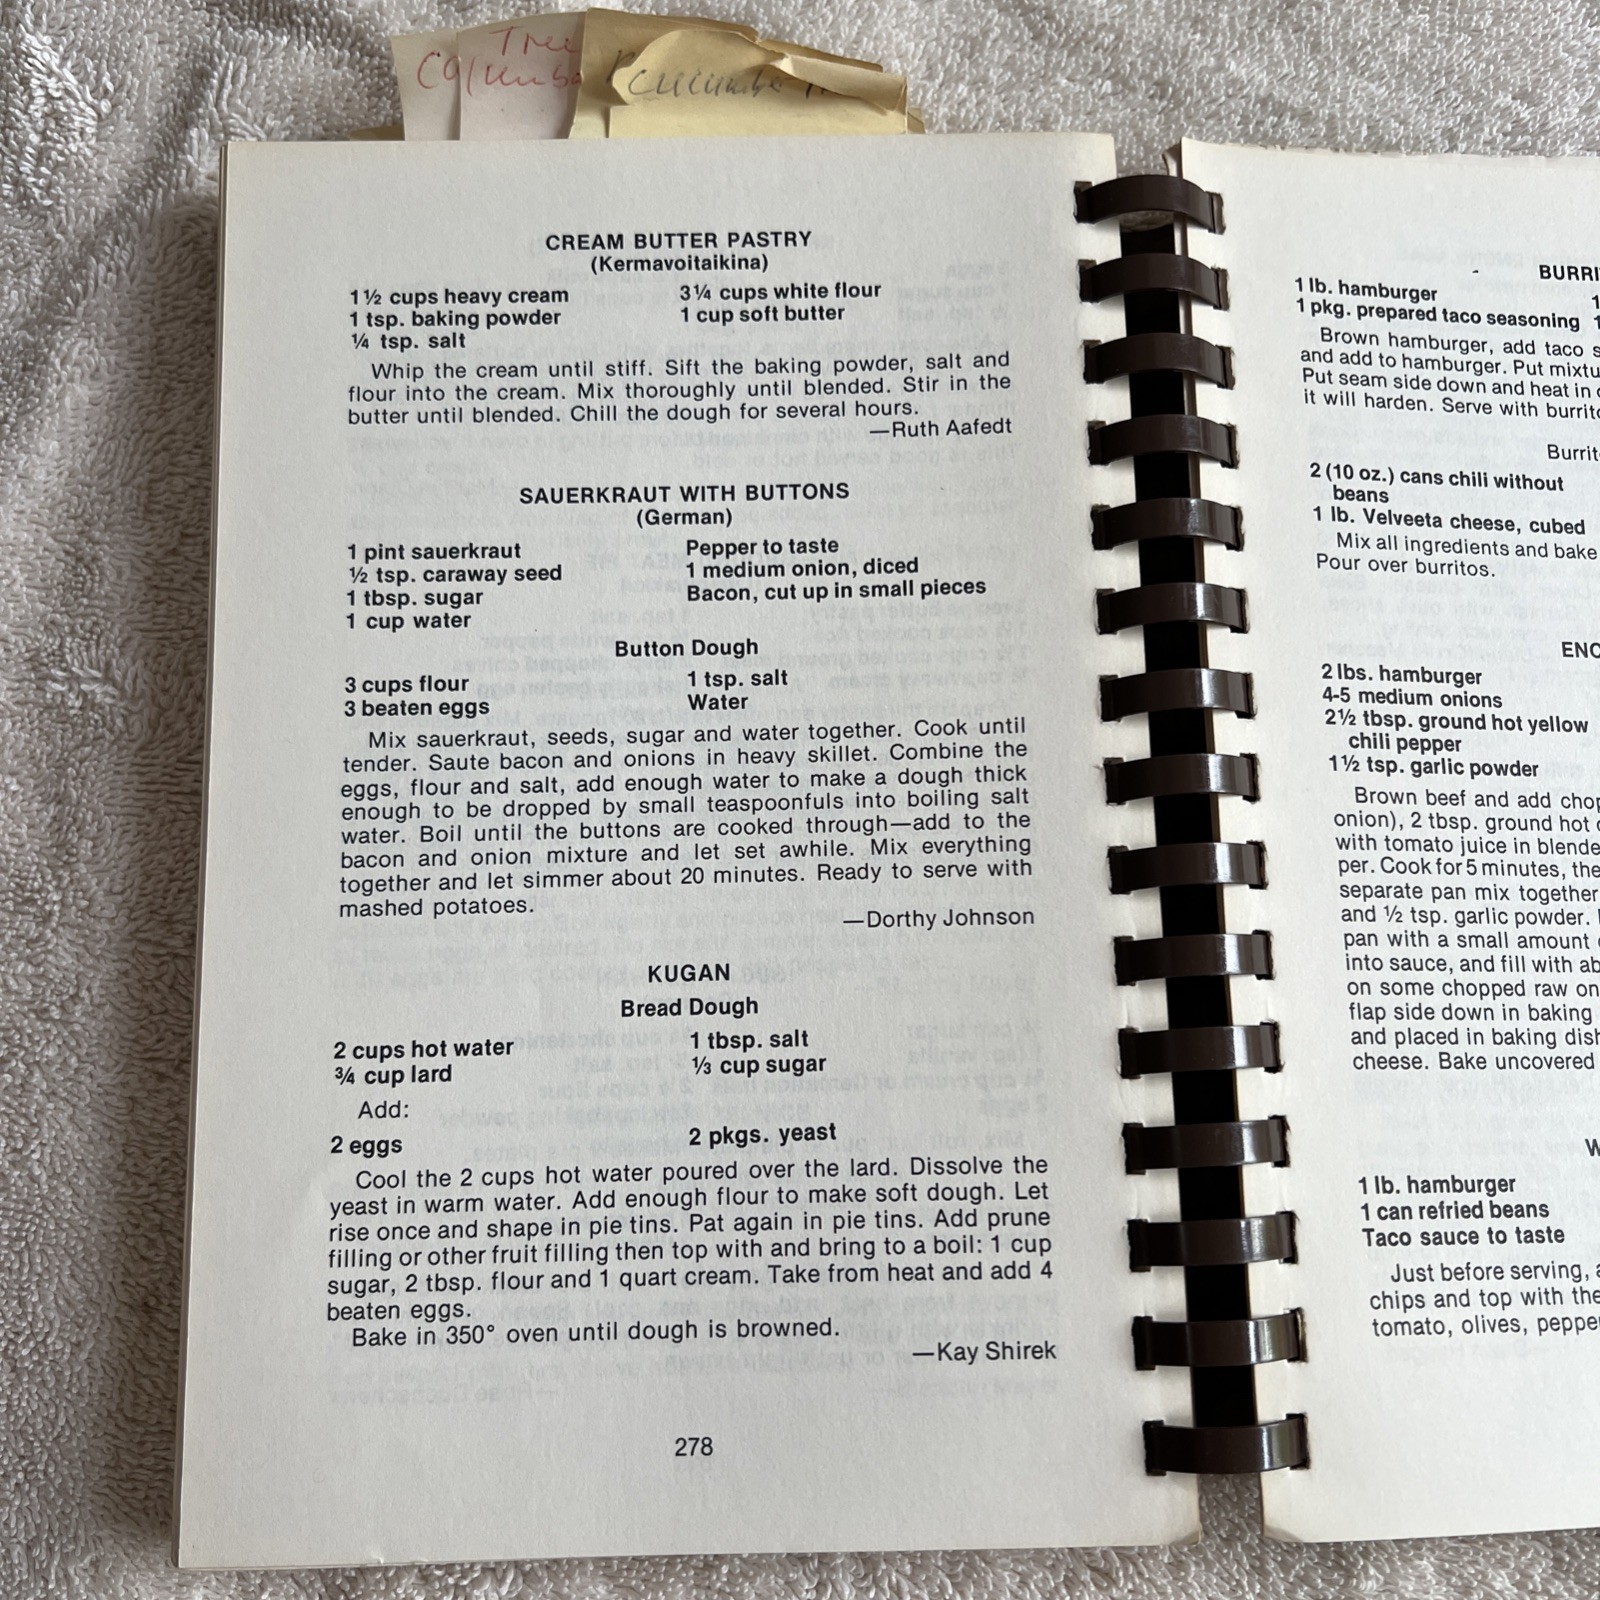 Tree
Cucumbe
CREAM BUTTER PASTRY
(Kermavoitaikina)
1½ cups heavy cream
1 tsp. baking powder
¼ tsp. salt
3¼ cups white flour
1 cup soft butter
Whip the cream until stiff. Sift the baking powder, salt and
flour into the cream. Mix thoroughly until blended. Stir in the
butter until blended. Chill the dough for several hours.
—Ruth Aafedt
SAUERKRAUT WITH BUTTONS
(German)
1 pint sauerkraut
½ tsp. caraway seed
1 tbsp. sugar
1 cup water
Pepper to taste
1 medium onion, diced
Bacon, cut up in small pieces
Button Dough
3 cups flour
3 beaten eggs
1 tsp. salt
Water
Mix sauerkraut, seeds, sugar and water together. Cook until
tender. Saute bacon and onions in heavy skillet. Combine the
eggs, flour and salt, add enough water to make a dough thick
enough to be dropped by small teaspoonfuls into boiling salt
water. Boil until the buttons are cooked through—add to the
bacon and onion mixture and let set awhile. Mix everything
together and let simmer about 20 minutes. Ready to serve with
mashed potatoes.
—Dorthy Johnson
KUGAN
Bread Dough
2 cups hot water
¾ cup lard
1 tbsp. salt
⅓ cup sugar
Add:
2 eggs
2 pkgs. yeast
Cool the 2 cups hot water poured over the lard. Dissolve the
yeast in warm water. Add enough flour to make soft dough. Let
rise once and shape in pie tins. Pat again in pie tins. Add prune
filling or other fruit filling then top with and bring to a boil: 1 cup
sugar, 2 tbsp. flour and 1 quart cream. Take from heat and add 4
beaten eggs.
Bake in 350° oven until dough is browned.
—Kay Shirek
278
BURRI
1 lb. hamburger
1 pkg. prepared taco seasoning
Brown hamburger, add taco s
and add to hamburger. Put mixtu
Put seam side down and heat in
it will harden. Serve with burrito
Burrit
2 (10 oz.) cans chili without
beans
1 lb. Velveeta cheese, cubed
Mix all ingredients and bake
Pour over burritos.
ENC
2 lbs. hamburger
4-5 medium onions
2½ tbsp. ground hot yellow
chili pepper
1½ tsp. garlic powder
Brown beef and add chop
onion), 2 tbsp. ground hot
with tomato juice in blende
per. Cook for 5 minutes, the
separate pan mix together
and ½ tsp. garlic powder.
pan with a small amount
into sauce, and fill with ab
on some chopped raw on
flap side down in baking
and placed in baking dish
cheese. Bake uncovered
W
1 lb. hamburger
1 can refried beans
Taco sauce to taste
Just before serving, a
chips and top with the
tomato, olives, peppe